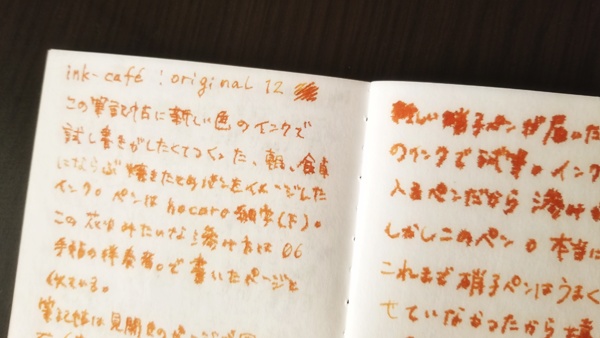 ink-café : original 12
この筆記帖に新しい色のインクで
試し書きがしたくてつくった、朝、食卓
にならぶ焼きたてのパンをイメージした
インク。ペンは hocoro 細字(下)。
この花ゆみたいな滲み方は 06
手帖の伴奏者。で書いたページと
似ている。
筆記帖は見開きのページが
新しい硝子ペンが届いた
のインクで試筆。インク
入るペンだから滲み
しかしこのペン。本当に
これまで硝子ペンはうまく
せていなかったから